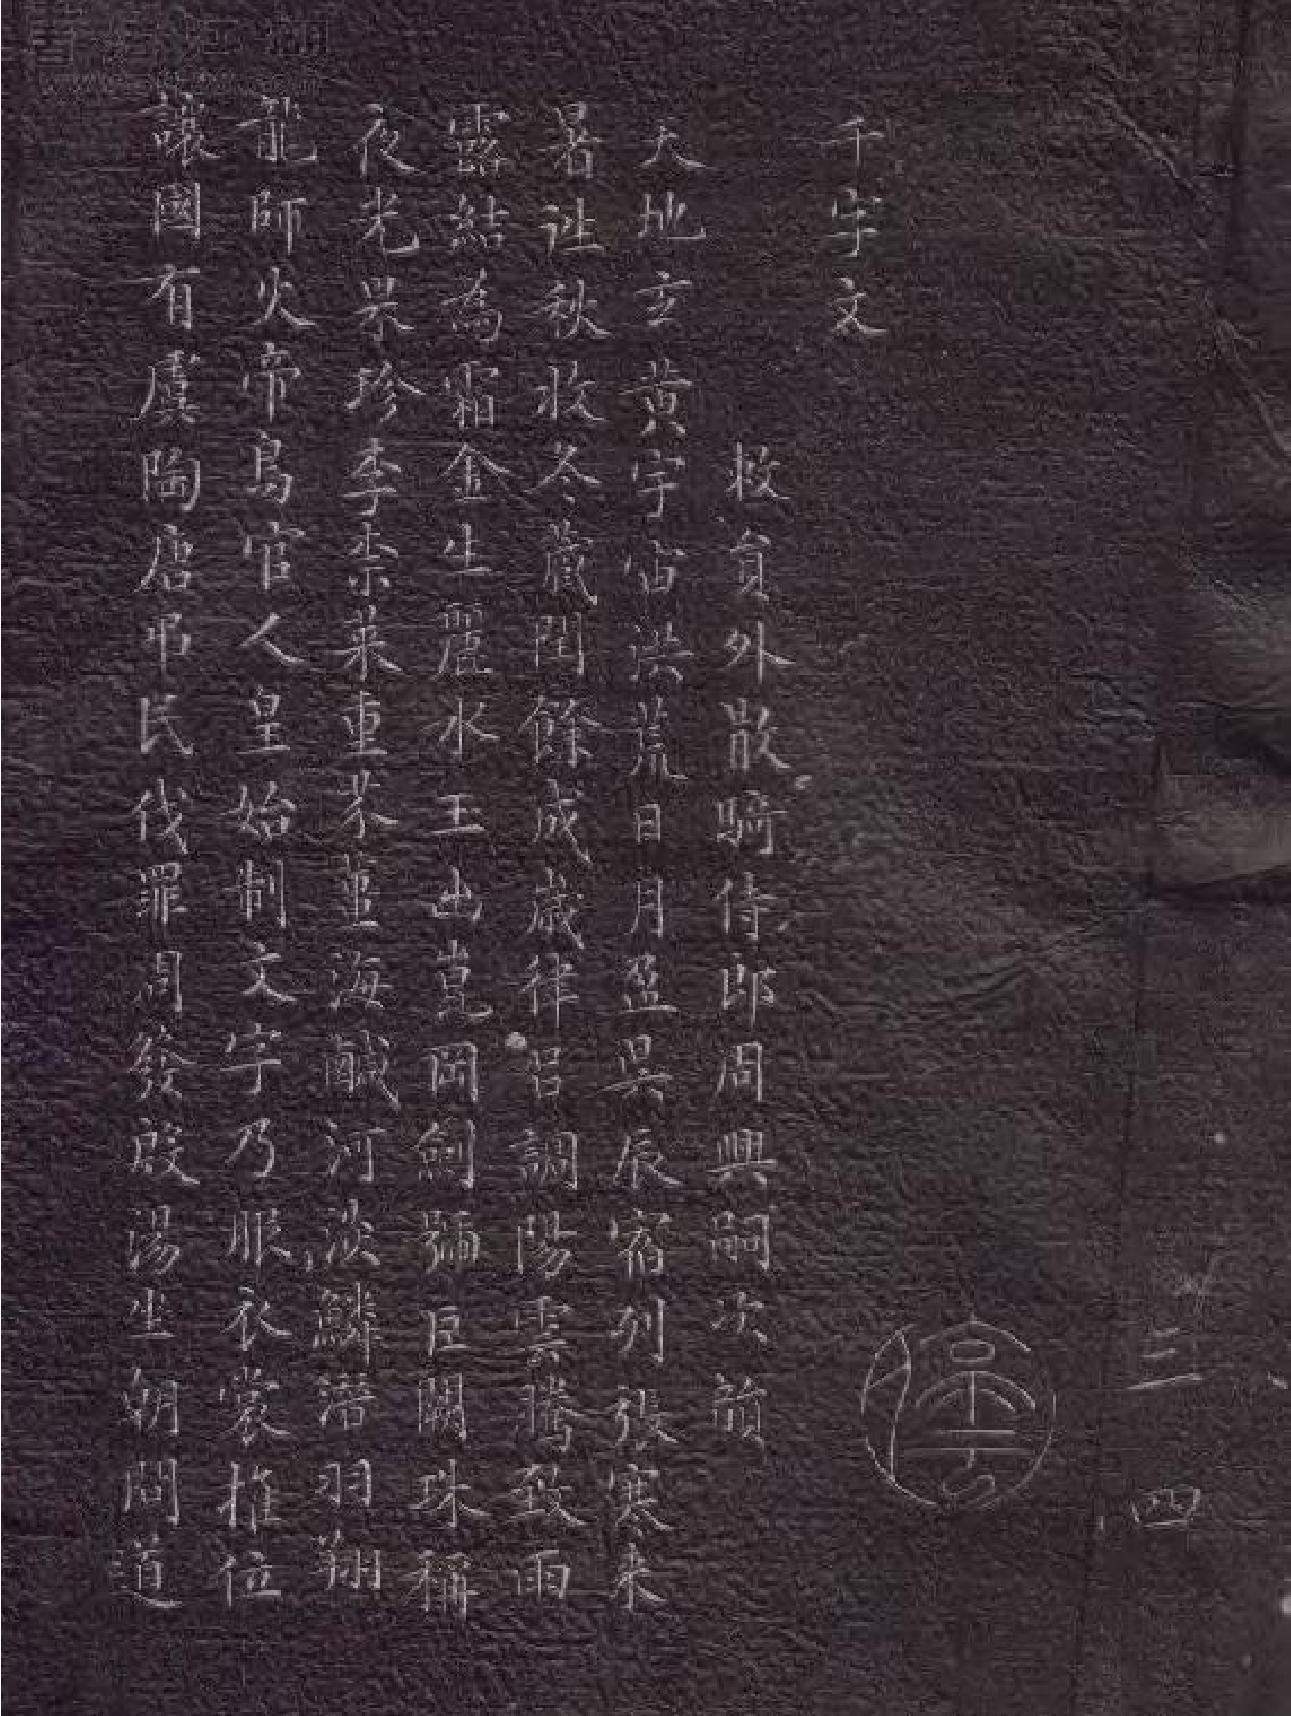 三 四
千字文
敕員外散騎侍郎周興嗣次韻
天地玄黃宇宙洪荒日月盈昃辰宿列張寒来
暑往秋收冬藏閏餘成歲律呂調陽雲騰致雨
露結為霜金生麗水玉出崑岡劍號巨闕珠稱
夜光果珍李柰菜重芥薑海鹹河淡鱗潛羽翔
龍師火帝鳥官人皇始制文字乃服衣裳推位
讓國有虞陶唐弔民伐罪周發殷湯坐朝問道